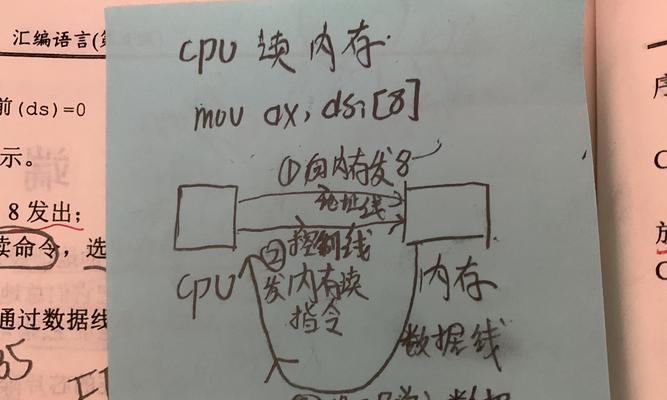 汇编语言(第
前(ds)=0
示。
8发出;
读命令,选
通过数据线
35
cpu 读内存
mov ax, ds:[8]
①向内存发8
地址线
②控制线
发内存读
指令
CPU
内存
数据线
序
C
放
C